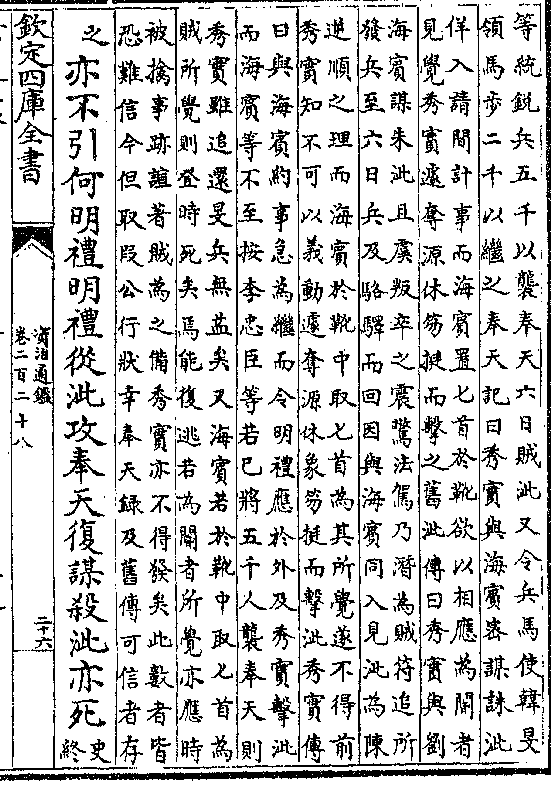 等統鋭兵五千以襲奉天六日賊泚又令兵馬使韓旻
領馬步二千以繼之奉天記曰秀實與海賓密謀誅泚
佯入請間計事而海賓置匕首於靴欲以相應為閽者
見覺秀實遽奪源休笏挺而擊之舊泚傳曰秀實與劉
海賓謀朱泚且虞叛卒之震驚法駕乃潛為賊符追所
發兵至六日兵及駱驛而回因與海賓同入見泚為陳
逆順之理而海賓於靴中取匕首為其所覺遂不得前
秀實知不可以義動遽奪源休象笏挺而擊泚秀實傳
曰與海賓約事急為繼而令明禮應於外及秀實擊泚
而海賓等不至按李忠臣等若已將五千人襲奉天則
秀實雖追還旻兵無益矣又海賓若於靴中取匕首為
賊所覺則登時死矣焉能復逃若為閽者所覺亦應時
被擒事跡諠著賊為之備秀實亦不得發矣此數者皆
恐難信今但取段公行狀幸奉天録及舊傳可信者存
之 亦不引何明禮明禮從泚攻奉天復謀殺泚亦死 史終
欽定四庫全書
資治通鑑
卷二百二十八
二十六